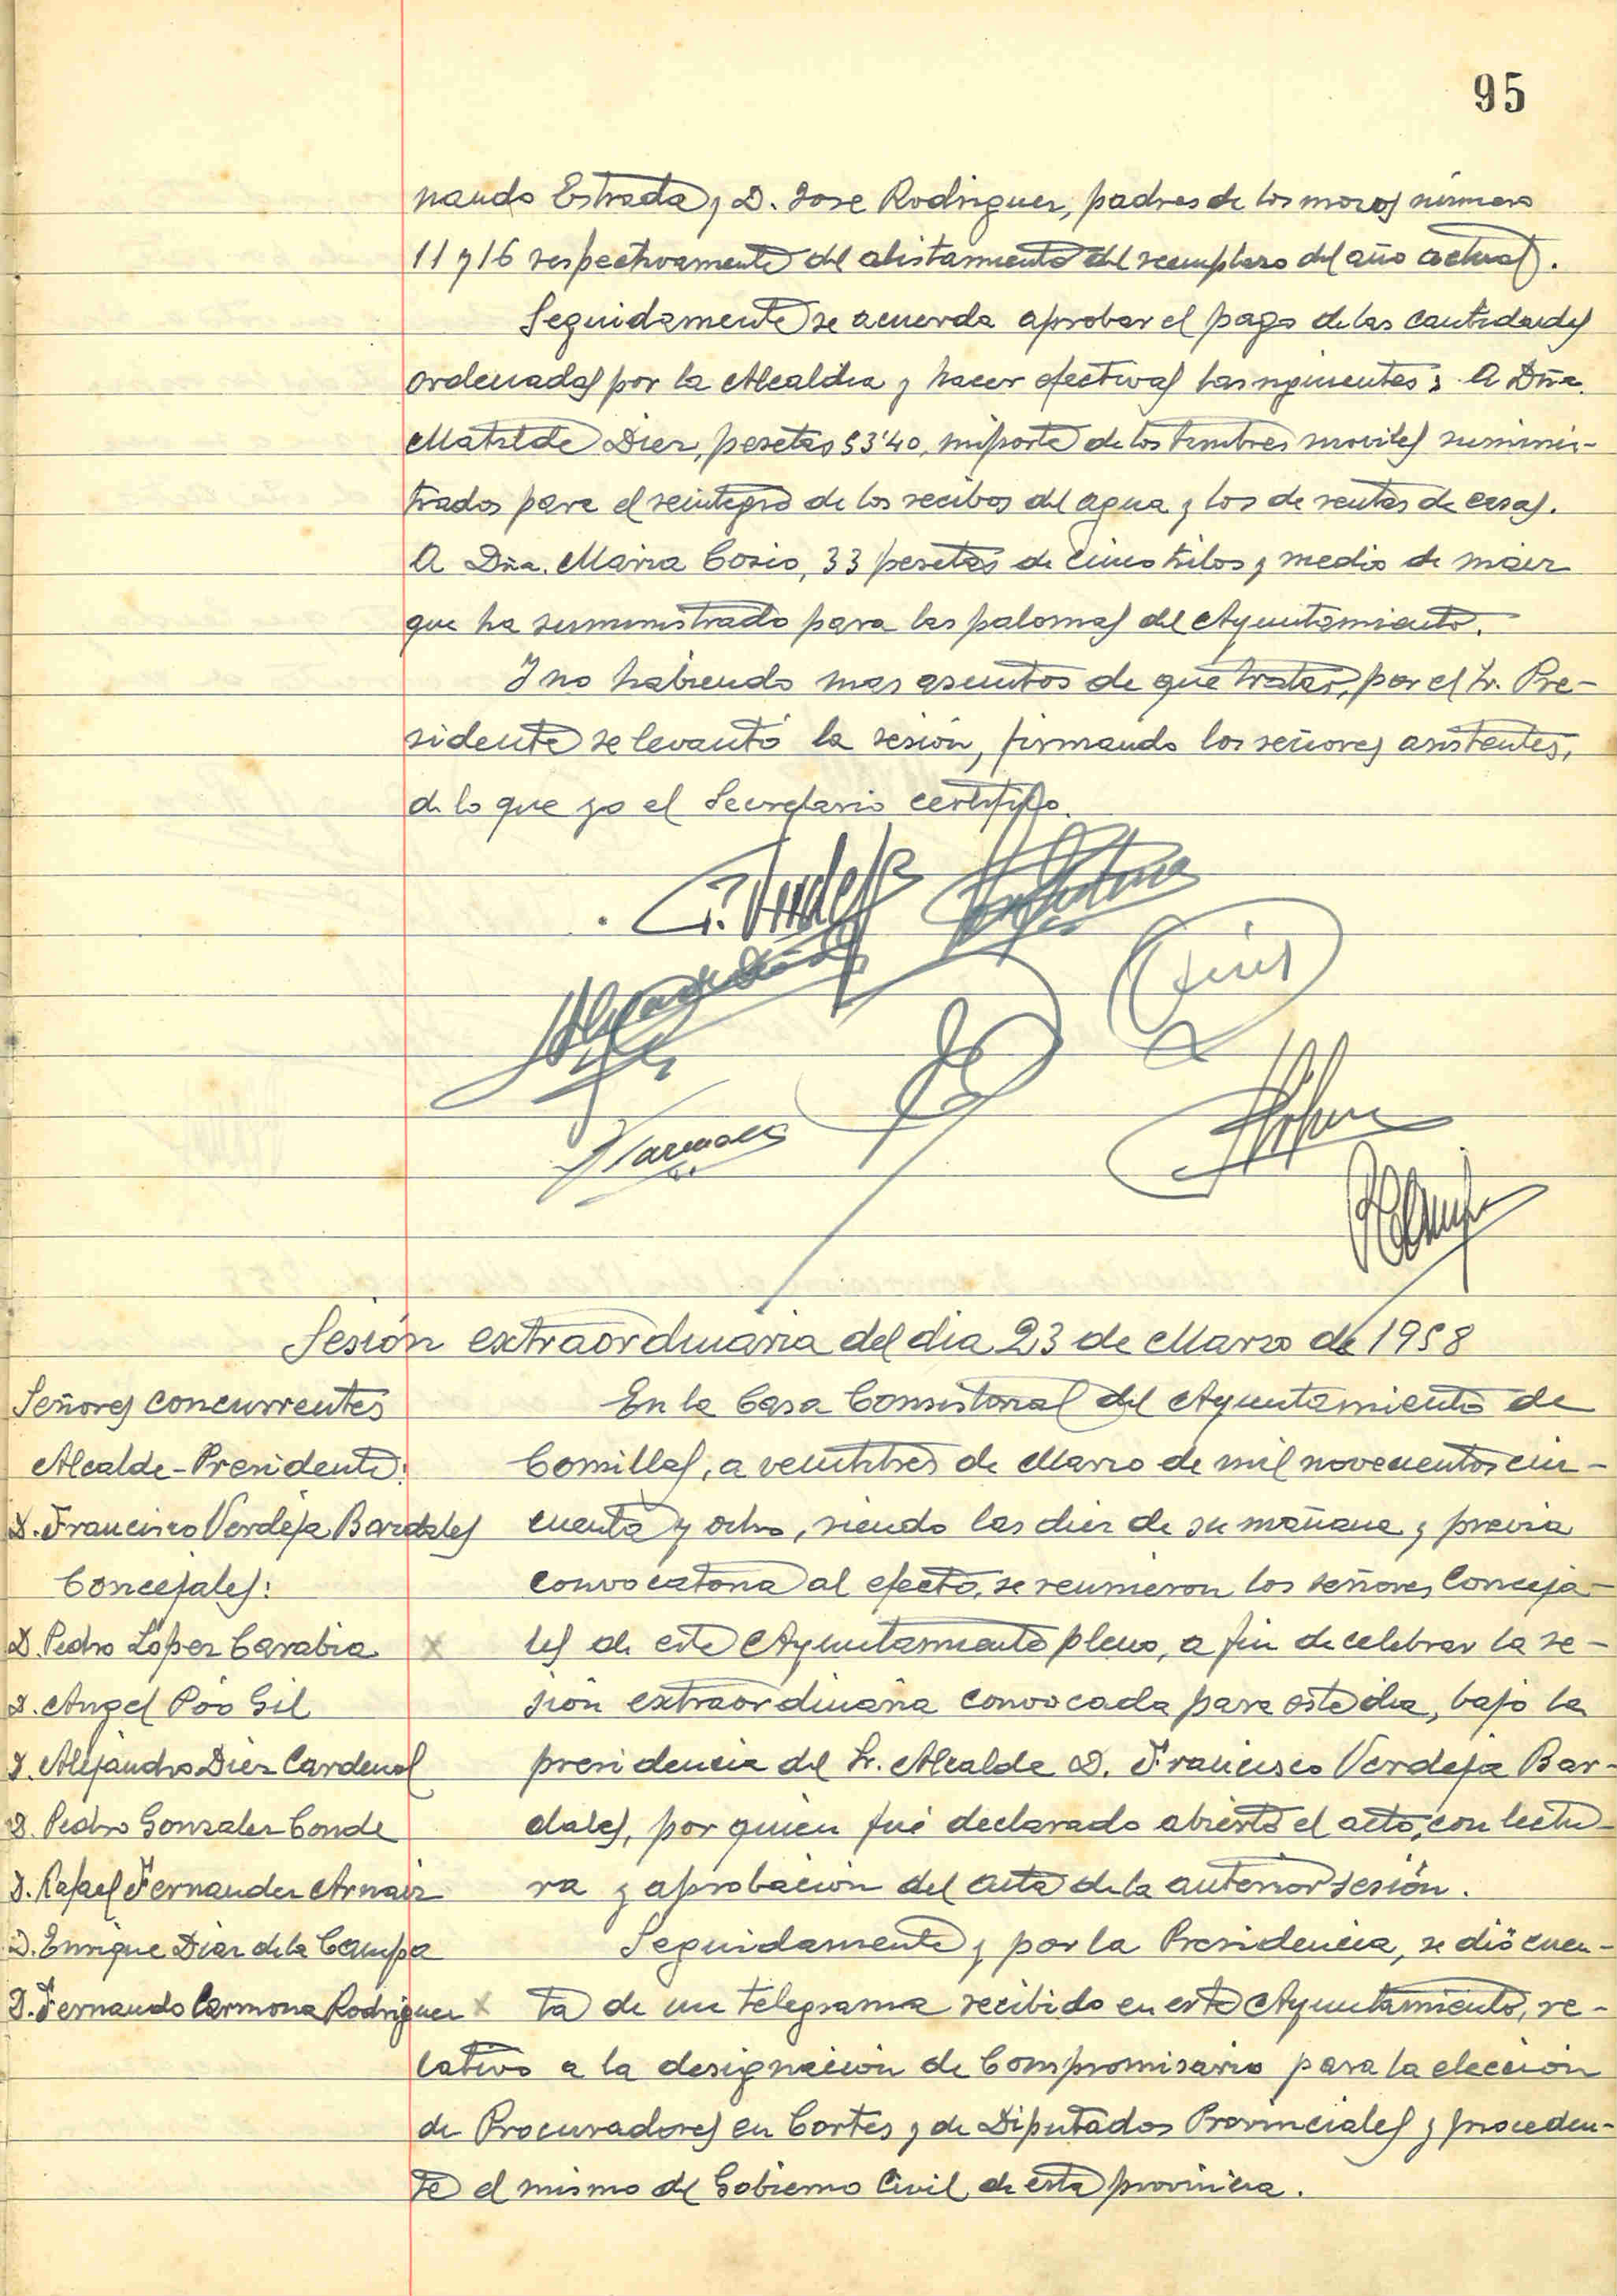 95
nando Estrada y D. Jose Rodriguez, padres de los mozos número
11 y 16 respectivamente del alistamiento del reemplazo del año actual.
Seguidamente se acuerda aprobar el pago de las cantidades
ordenadas por la Alcaldia y hacer efectivas las siguientes: A Dña.
Matilde Diez, pesetas 53'40, importe de los timbres moviles suminis-
trados para el reintegro de los recibos del agua y los de rentas de casas.
A Dña. Maria Cosio, 33 pesetas de cinco kilos y medio de maiz
que ha suministrado para las palomas del Ayuntamiento.
Y no habiendo mas asuntos de que tratar, por el Sr. Pre-
sidente se levantó la sesión, firmando los señores asistentes,
de lo que yo el Secretario certifico.
Sesión extraordinaria del dia 23 de Marzo de 1958
Señores concurrentes
Alcalde-Presidente:
D. Francisco Verdeja Bardales
Concejales:
D. Pedro López Carabia x
D. Angel Póo Gil
D. Alejandro Diez Cardenal
D. Pedro Gonzalez Conde
D. Rafael Fernandez Arnaiz
D. Enrique Diaz de la Campa
D. Fernando Carmona Rodriguez x
En la Casa Consistorial del Ayuntamiento de
Comillas, a veintitres de Marzo de mil novecientos cin-
cuenta y ocho, siendo las diez de su mañana y previa
convocatoria al efecto, se reunieron los señores Conceja-
les de este Ayuntamiento pleno, a fin de celebrar la se-
sión extraordinaria convocada para este dia, bajo la
presidencia del Sr. Alcalde D. Francisco Verdeja Bar-
dales, por quien fué declarado abierto el acto, con lectu-
ra y aprobacion del acta de la anterior sesión.
Seguidamente y por la Presidencia, se dió cuen-
ta de un telegrama recibido en este Ayuntamiento, re-
lativo a la designación de Compromisario para la elección
de Procuradores en Cortes y de Diputados Provinciales y proceden-
te el mismo del Gobierno Civil de esta provincia.